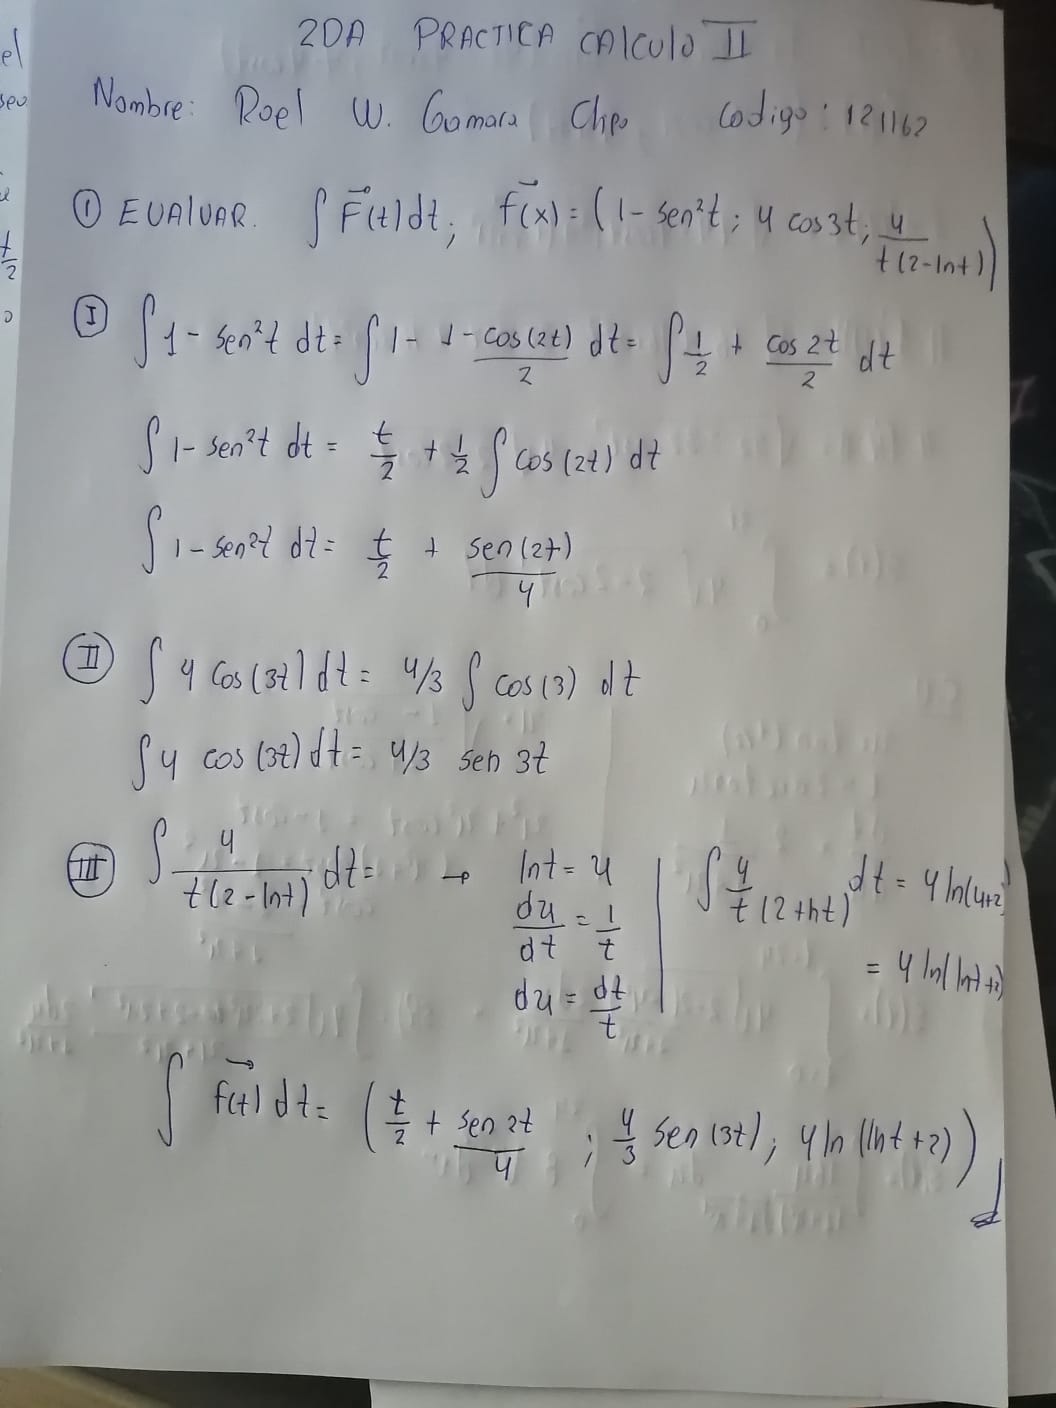 2DA PRACTICA CAlculo II
Nombre: Roel W. Gamara Codigo: 121162
① EVAlUAR. ∫ F⃗(t)dt; f⃗(x) = (1 - sen²t; 4 cos 3t; 4/t(2-lnt))
Ⓘ ∫ 1 - sen²t dt = ∫ 1 - 1 - cos(2t)/2 dt = ∫ 1/2 + cos 2t/2 dt
∫ 1 - sen²t dt = t/2 + 1/2 ∫ cos(2t) dt
∫ 1 - sen²t dt = t/2 + sen(2t)/4
II ∫ 4 cos(3t) dt = 4/3 ∫ cos(3) dt
∫ 4 cos(3t) dt = 4/3 sen 3t
III ∫ 4/t(2-lnt) dt = → lnt = u
du/dt = 1/t
du = dt/t
∫ 4/t(2+ht) dt = 4 ln(u+2)
= 4 ln(lnt+2)
∫ f⃗(t) dt = (t/2 + sen 2t/4 ; 4/3 sen(3t); 4 ln(lnt+2))
el
seu
t/2